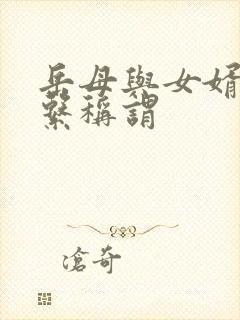 岳母與女婿
繫稱謂
滄奇